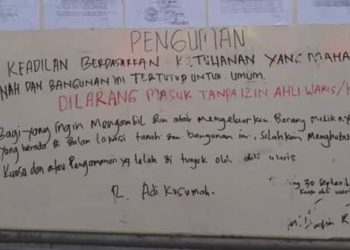 PENGUMAN
KEADILAN BERDASARKAN KETUHANAN YANG MAHA
NAH DAN BANGUNAN INI TERTUTUP UNTUK UMUM.
DILARANG MASUK TANPA IZIN AHLI WARIS/K
Bagi yang Ingin Mengambil dan atau mengeluarkan Barang miliknya
yang berada di dalam lokasi tanah dan bangunan ini, Silahkan Menghubu
Kuasa dan atau Pengamanan yg telah di tunjuk oleh ahli waris
R. Adi Kusumah.
30 Septem